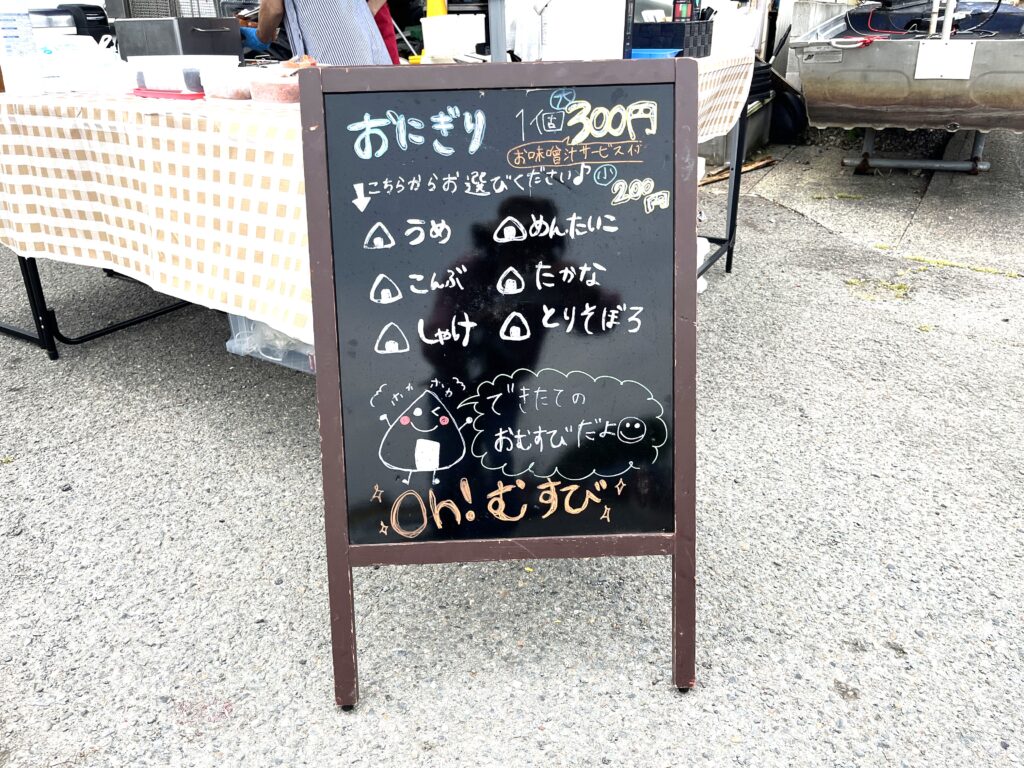 おにぎり 1個 大 300円
お味噌汁サービス付
こちらからお選びください♪ 小 200円
うめ めんたいこ
こんぶ たかな
しゃけ とりそぼろ
ホカ ホカ
できたての
おむすびだよ
Oh!むすび